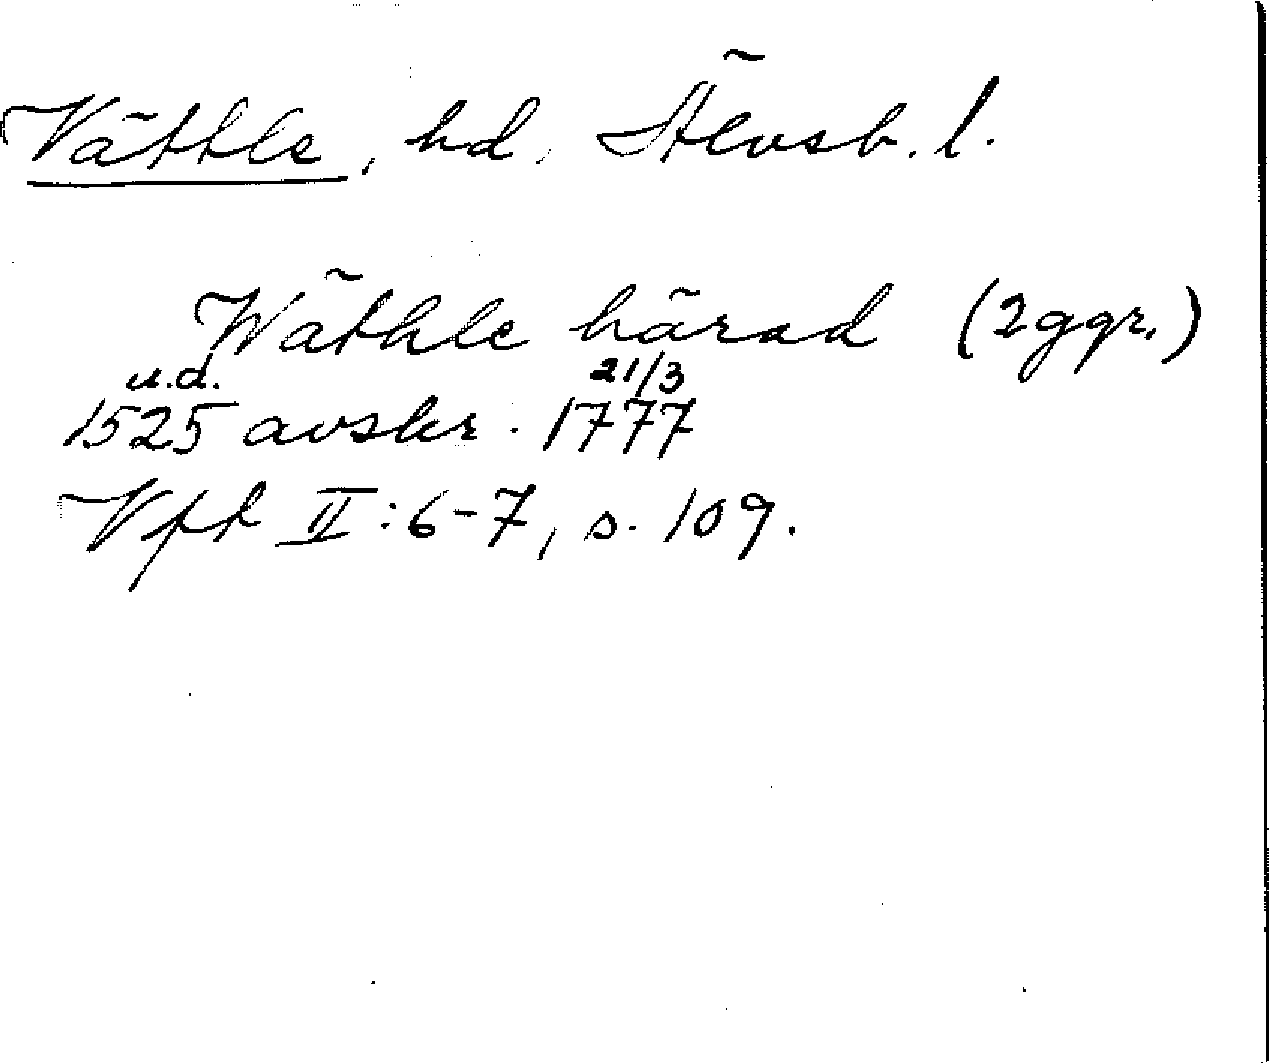 Vättle, hd, Älvsb. l.
Wäthle härad (2ggr.)
u.d. 21/3
1525 avskr. 1777
Vft II:6-7, s. 109.